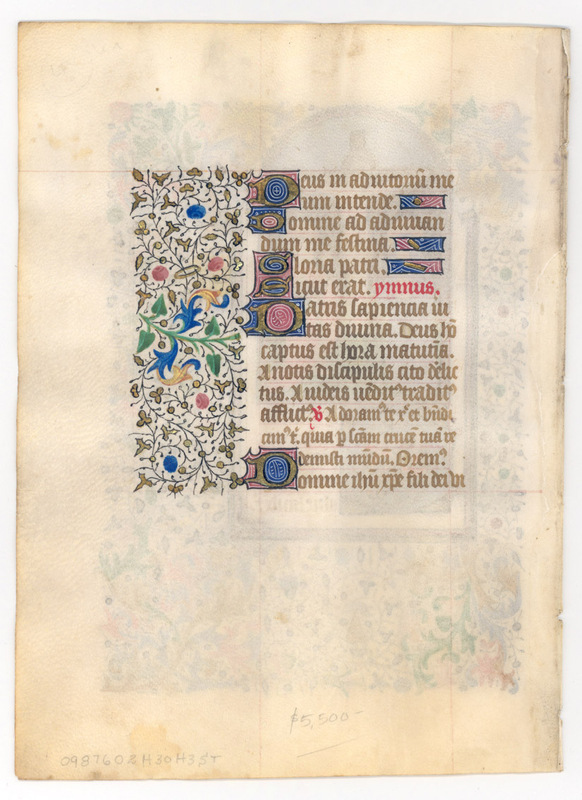 Deus in adiutoriū me
um intende.
Domine ad adiuuan
dum me festina.
Gloria patri
Sicut erat. ymnus.
Patris sapiencia ui
tas diuina. Deus hō
captus est hora matutīa.
A notis discipulis cito delic
tus. A iudeis uēdit' tradit'
afflict'. V̄ Adoram' te xp̄e et bn̄di
cim' t', quia p̄ sc̄am crucē tuā re
demisti mūdū. Orem'
Domine ihū xp̄e fili dei ui
$5,500-
0987602H30H35T